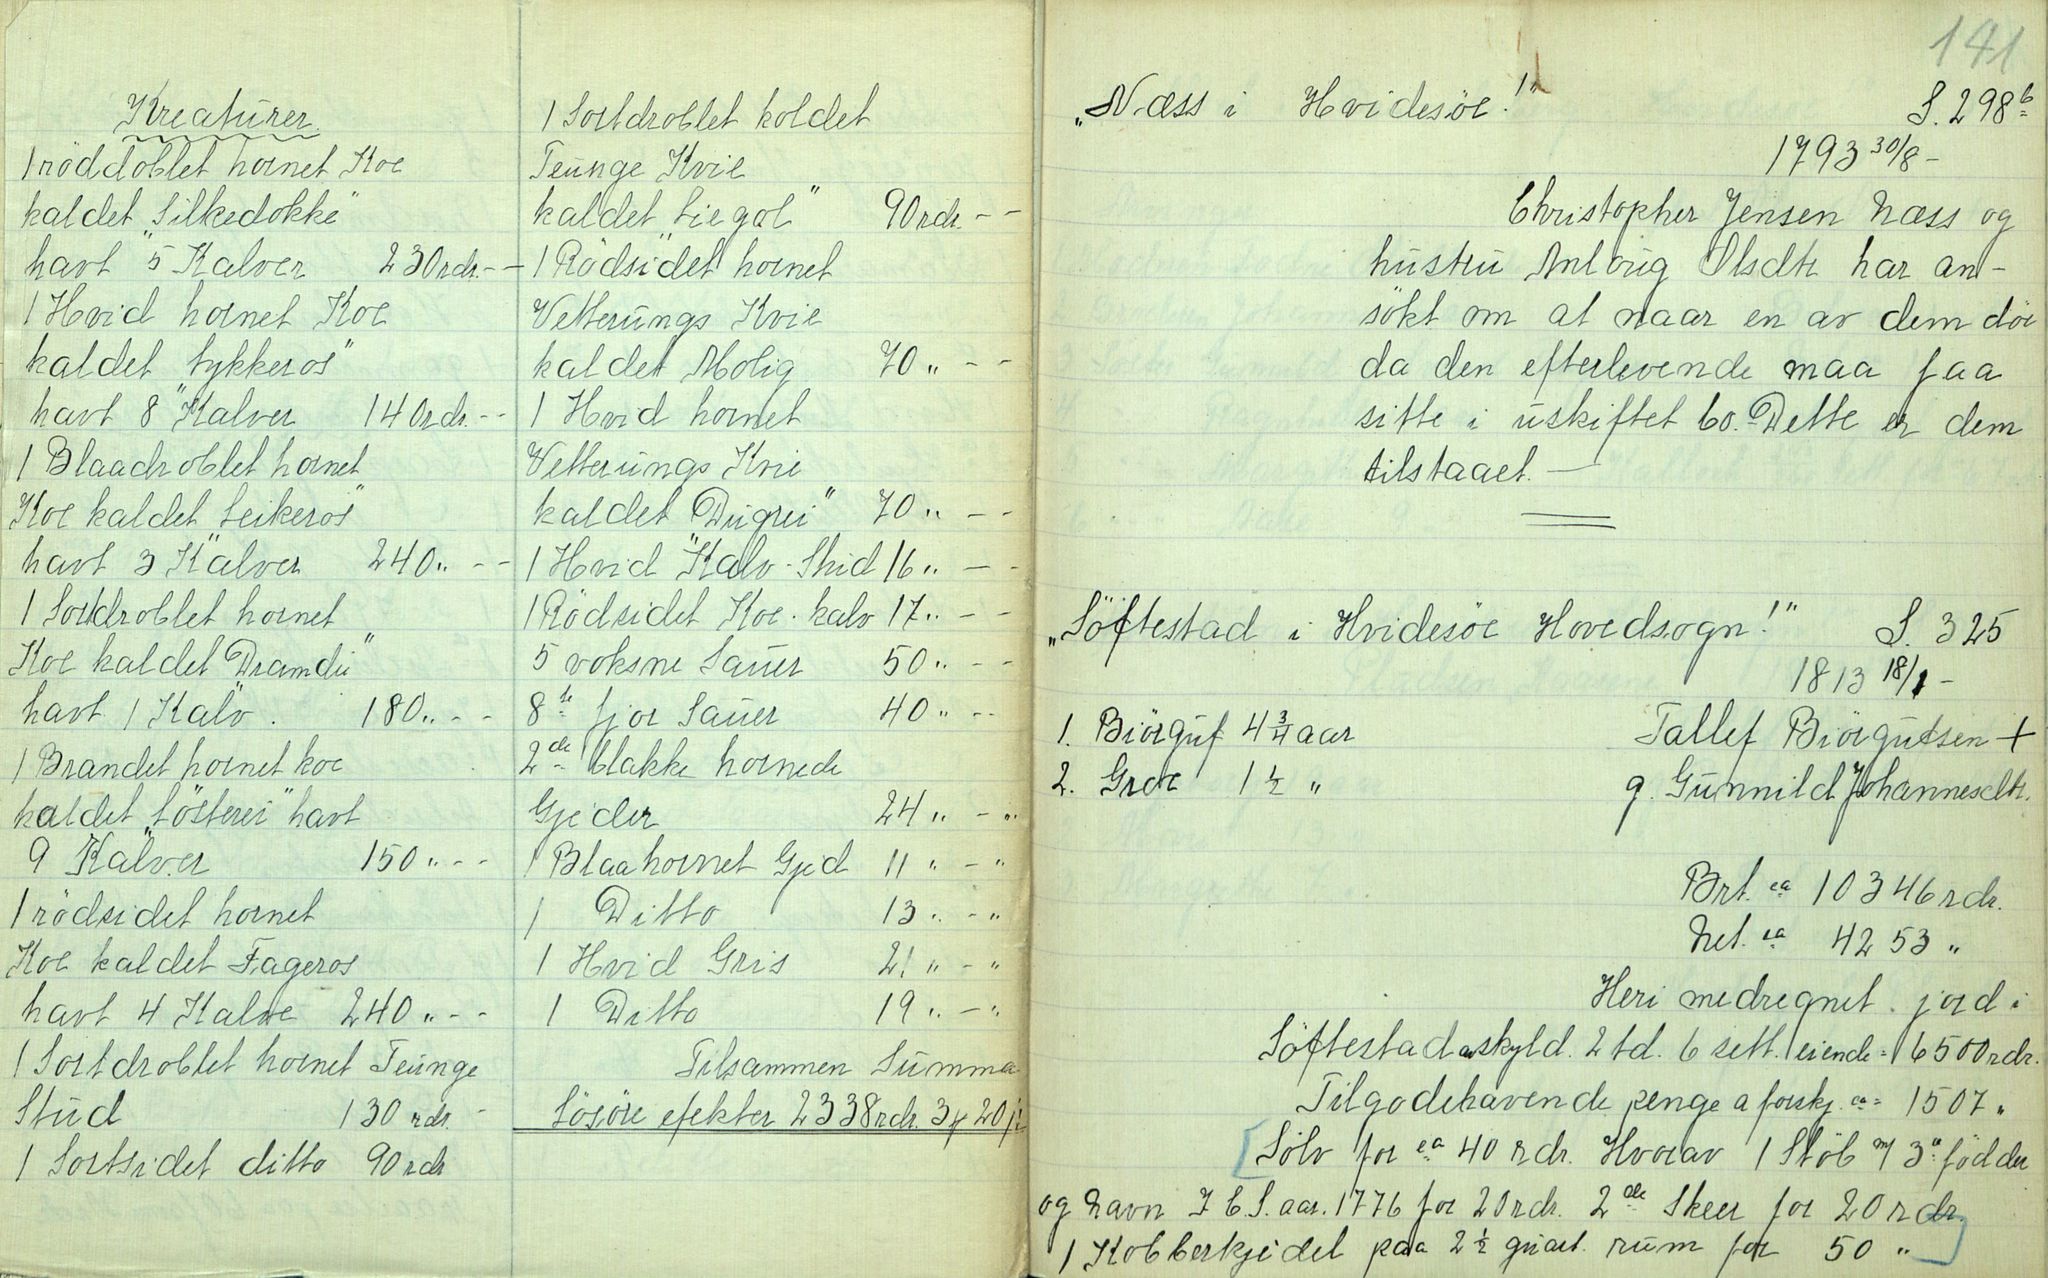 Kreaturer.
1 röddoblet hornet Koe
kaldet "Silkedokke"
havt 5 Kalver 230 rdr. - -
1 Hvid hornet Koe
kaldet Lykkeros"
havt 8 Kalver 140 rdr. - -
1 Blaadroblet hornet
Koe kaldet Leikeros"
havt 3 Kalver 240 „ - -
1 Sortdroblet hornet
Koe kaldet "Dramdii"
havt 1 Kalv. 180 „ - -
1 Brandet hornet koe
kaldet "Lösterei" havt
9 Kalver 150 „ - -
1 rödsidet hornet
Koe kaldet Fageros
havt 4 Kalve 240 „ - -
1 Sortdroblet hornet Teunge
Stud 130 rdr. -
1 Sortsidet ditto 90 rdr
1 Sortdroblet koldet
Teunge Kvie
kaldet "Liegol" 90 rdr. - -
1 Rödsidet hornet
Vetterungs Kvie
kaldet Molig 70 „ - -
1 Hvid hornet
Vetterungs Kvie
kaldet "Dugrei" 70 „ - -
1 Hvid Kalv - Stud 16 „ - -
1 Rödsidet Koe. kalv 17 „ - -
5 voksne Sauer 50 „ - -
8te fjor Sauer 40 „ - -
2de blakke hornede
Gjeder 24 „ - „
1 Blaahornet Gjed 11 „ - „
1 Ditto 13 „ - „
1 Hvid Gris 21 „ - „
1 Ditto 19 „ - „
Tilsammen Summa
Lösöre efekter 2338 rdr. 3 20
141
„Næss i Hvidesöe!" S. 298 b
1793 30/8 -
Christopher Jensen Næss og
hustru Anloug Olsdtr har an-
sökt om at naar en av dem döe
da den efterlevende maa faa
sitte i uskiftet bo. Dette er dem
tilstaaet. —
„Söftestad i Hvidesöe Hovedsogn!" S. 325
1813 18/1 -
1. Biörguf 4 3/4 aar Tallef Biörgufsen +
2. Groe 1 1/2 „ g. Gunnild Johannesdtr.
Brt. ca 10346 rdr.
Net. ca 4253 „
Heri medregnet jord i
Söftestad askyld. 2 td. 6 sett. eiende = 6500 rdr.
Tilgodehavende penge a forskj. ca = 1507 „
[Sölv for ca 40 rdr. Hvorav 1 Stöb m/ 3 födder
og navn I C. S. aar. 1776 for 20 rdr. 2de Skeer for 20 rdr
1 Kobberkjedel paa 2 1/2 quart. rum for 50 „]